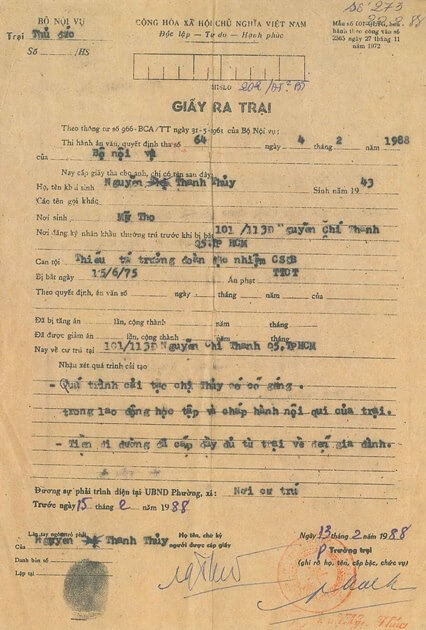 Số 273
22.2.88
BỘ NỘI VỤ
Trại Thủ Đức
Số /HS
CỘNG HÒA XÃ HỘI CHỦ NGHĨA VIỆT NAM
Độc lập — Tự do — Hạnh phúc
Mẫu số 001-QLTG, ban
hành theo công văn số
2565 ngày 27 tháng 11
năm 1972
GIẤY RA TRẠI
Theo thông tư số 966-BCA/TT ngày 31-5-1961 của Bộ Nội vụ :
Thi hành án văn, quyết định tha số 64 ngày 4 tháng 2 năm 1988
của Bộ nội vụ
Nay cấp giấy tha cho anh, chị có tên sau đây:
Họ, tên khai sinh Nguyễn Thanh Thủy Sinh năm 1943
Các tên gọi khác
Nơi sinh Mỹ Tho
Nơi đăng ký nhân khẩu thường trú trước khi bị bắt 101/113D Nguyễn Chí Thanh
Q5.TP HCM
Can tội Thiếu tá trưởng đoàn đặc nhiệm CSQB
Bị bắt ngày 15/6/75 Án phạt TTCT
Theo quyết định, án văn số ngày tháng năm của
Đã bị tăng án lần, cộng thành năm tháng
Đã được giảm án lần, cộng thành năm tháng
Nay về cư trú tại 101/113D Nguyễn Chí Thanh Q5.TPHCM
Nhận xét quá trình cải tạo
- Quá trình cải tạo chị Thủy có cố gắng.
trong lao động học tập và chấp hành nội qui của trại.
- Tiền đi đường đã cấp đầy đủ từ trại về đến gia đình.
Đương sự phải trình diện tại UBND Phường, xã : Nơi cư trú
Trước ngày 15 tháng 2 năm 1988
Lăn tay ngón trỏ phải
Của Nguyễn Thanh Thủy
Danh bản số
Lập tại
Họ tên, chữ ký
người được cấp giấy
Ngày 13 tháng 2 năm 1988
P Trưởng trại
(ghi rõ họ, tên, cấp bậc, chức vụ)